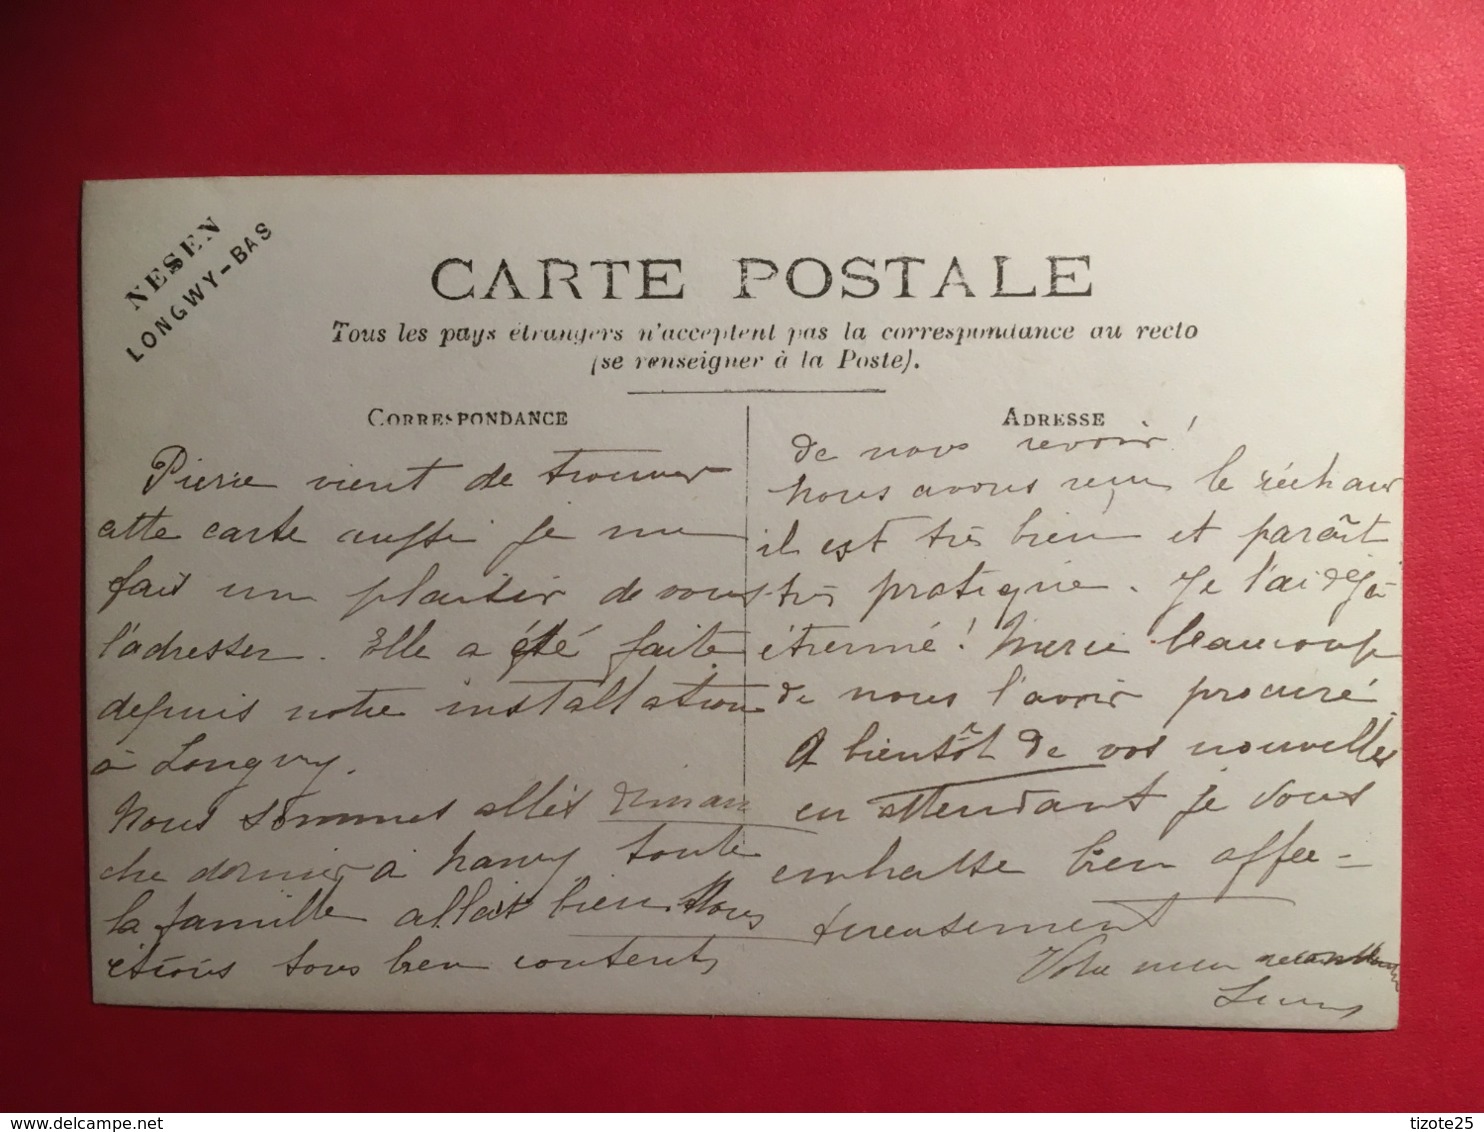 NESEN
LONGWY-BAS
CARTE POSTALE
Tous les pays étrangers n'acceptent pas la correspondance au recto
(se renseigner à la Poste).
CORRESPONDANCE
Pierre vient de trouver
cette carte aussi je me
fais un plaisir de vous
l'adresser. Elle a été faite
depuis notre installation
à Longwy.
Nous sommes allés diman
che dernier à Nancy toute
la famille allait bien. Nous
étions tous bien contents
ADRESSE
de nous revoir!
Nous avons reçu le réchaud
il est très bien et paraît
très pratique. Je l'ai déjà
étrenné! Merci beaucoup
de nous l'avoir procuré
A bientôt de vos nouvelles
en attendant je vous
embrasse bien affec-
tueusement
Votre
delcampe.net
tizote25